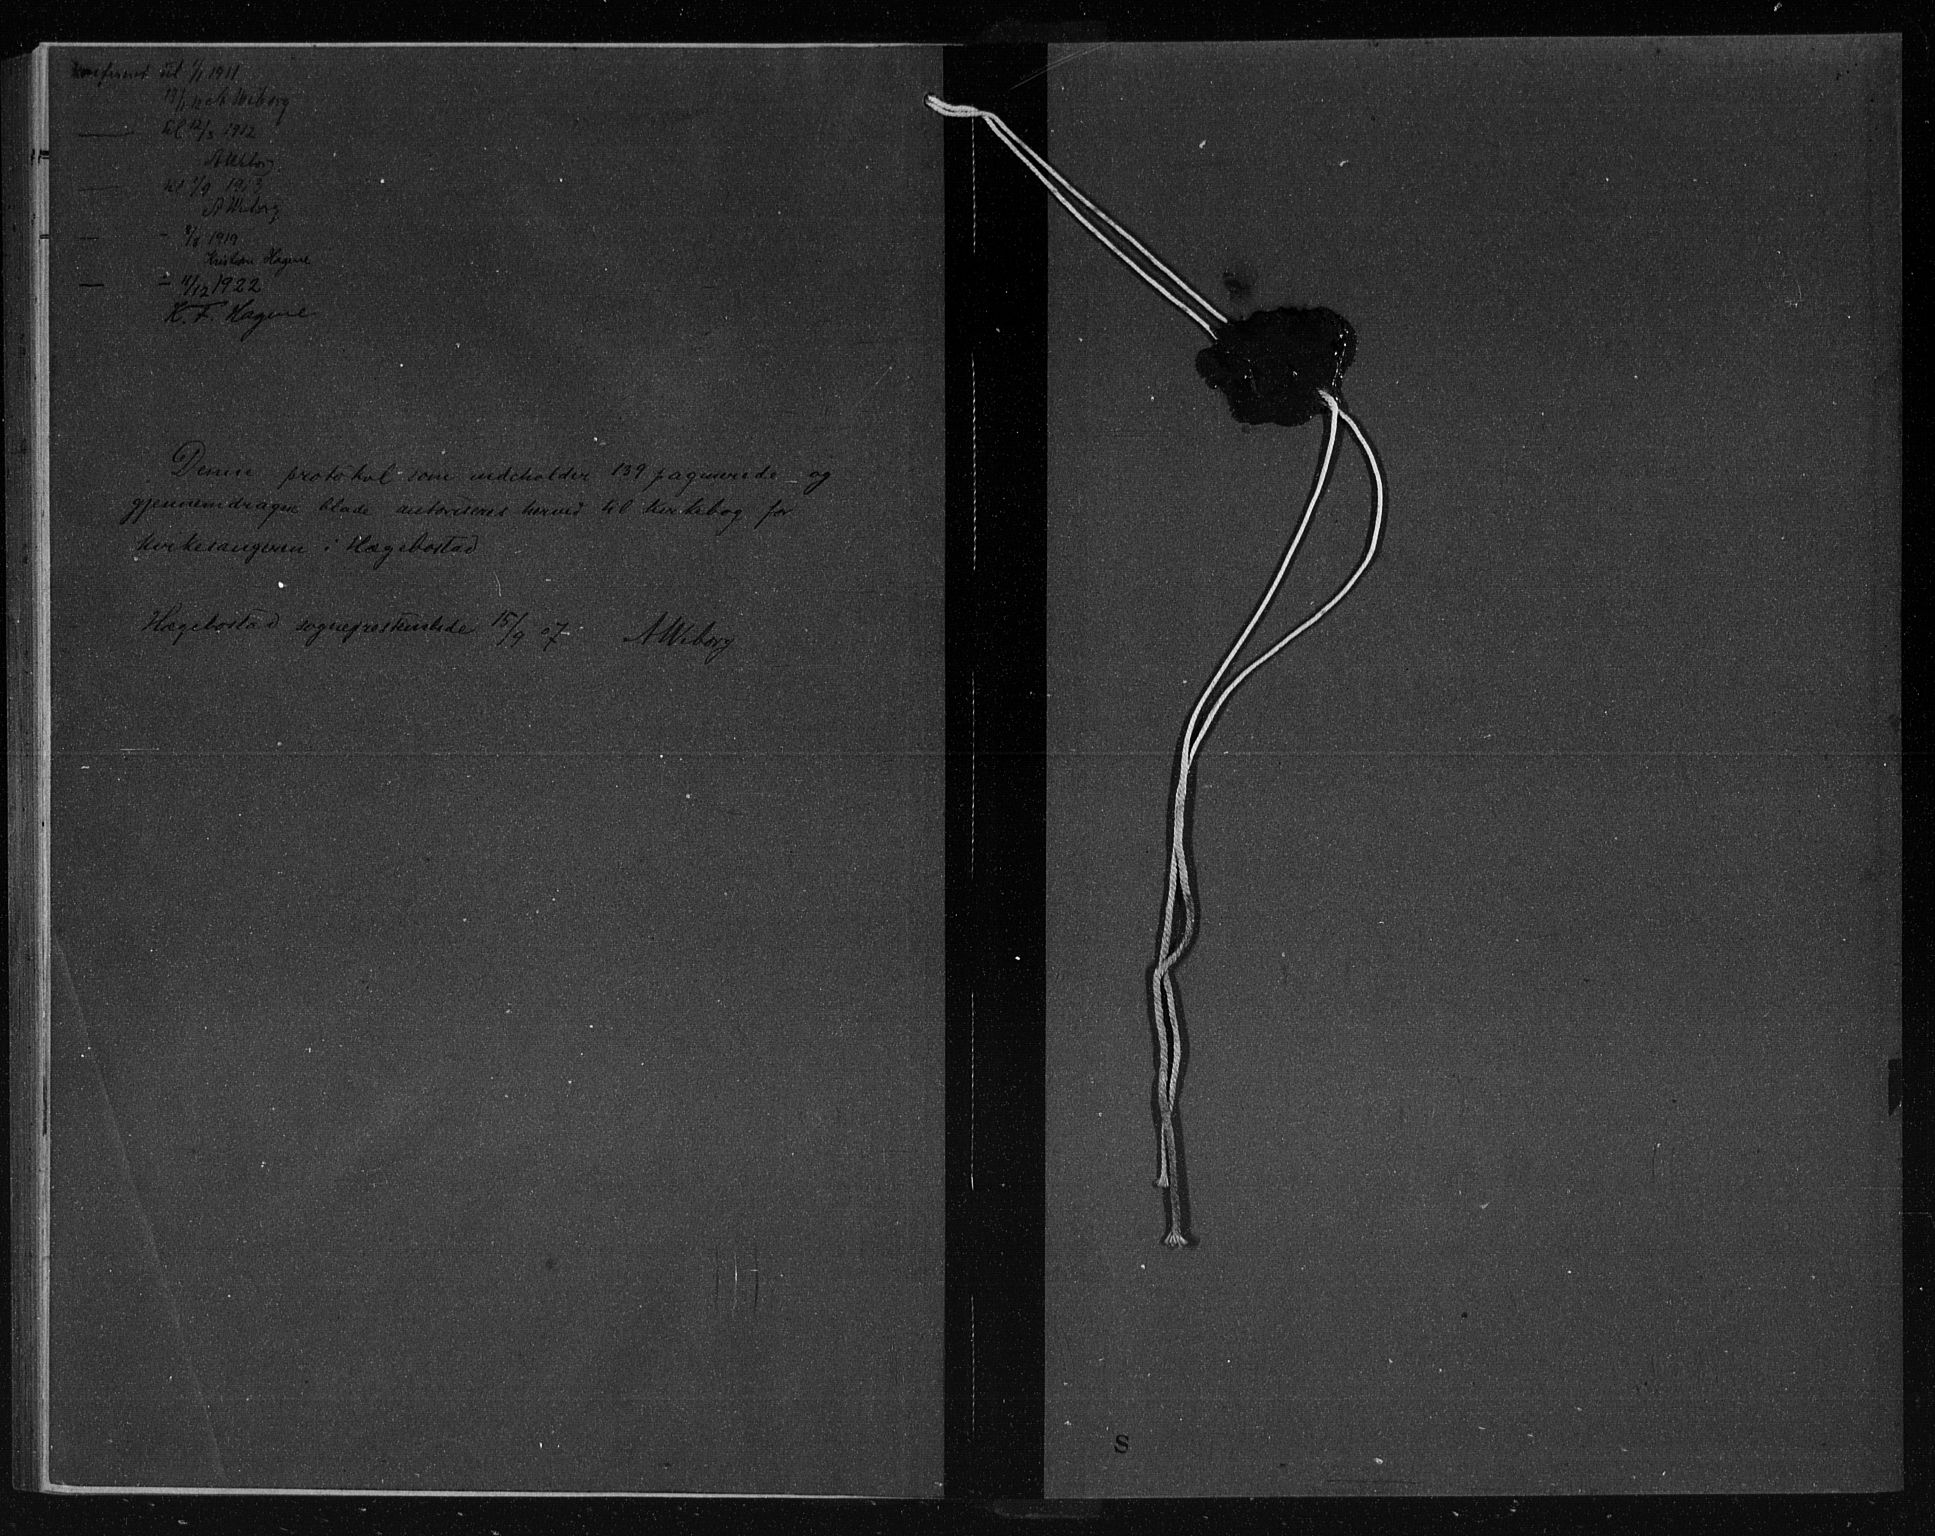 Konfereret til 1/1 1911
13/1 11 A Weborg
— til 12/3 1912
A Weborg
— til 1/9 1913
A Weborg
— - 8/8 1919
Kristian Hagene
— - 11/12 1922
K. F. Hagene
Denne protokol som indeholder 139 paginerede og
gjennemdragne blade autoriseres herved til kirkebog for
kirkesangeren i Hægebostad
Hægebostad sogneprestembede 15/9 07 A Weborg
S